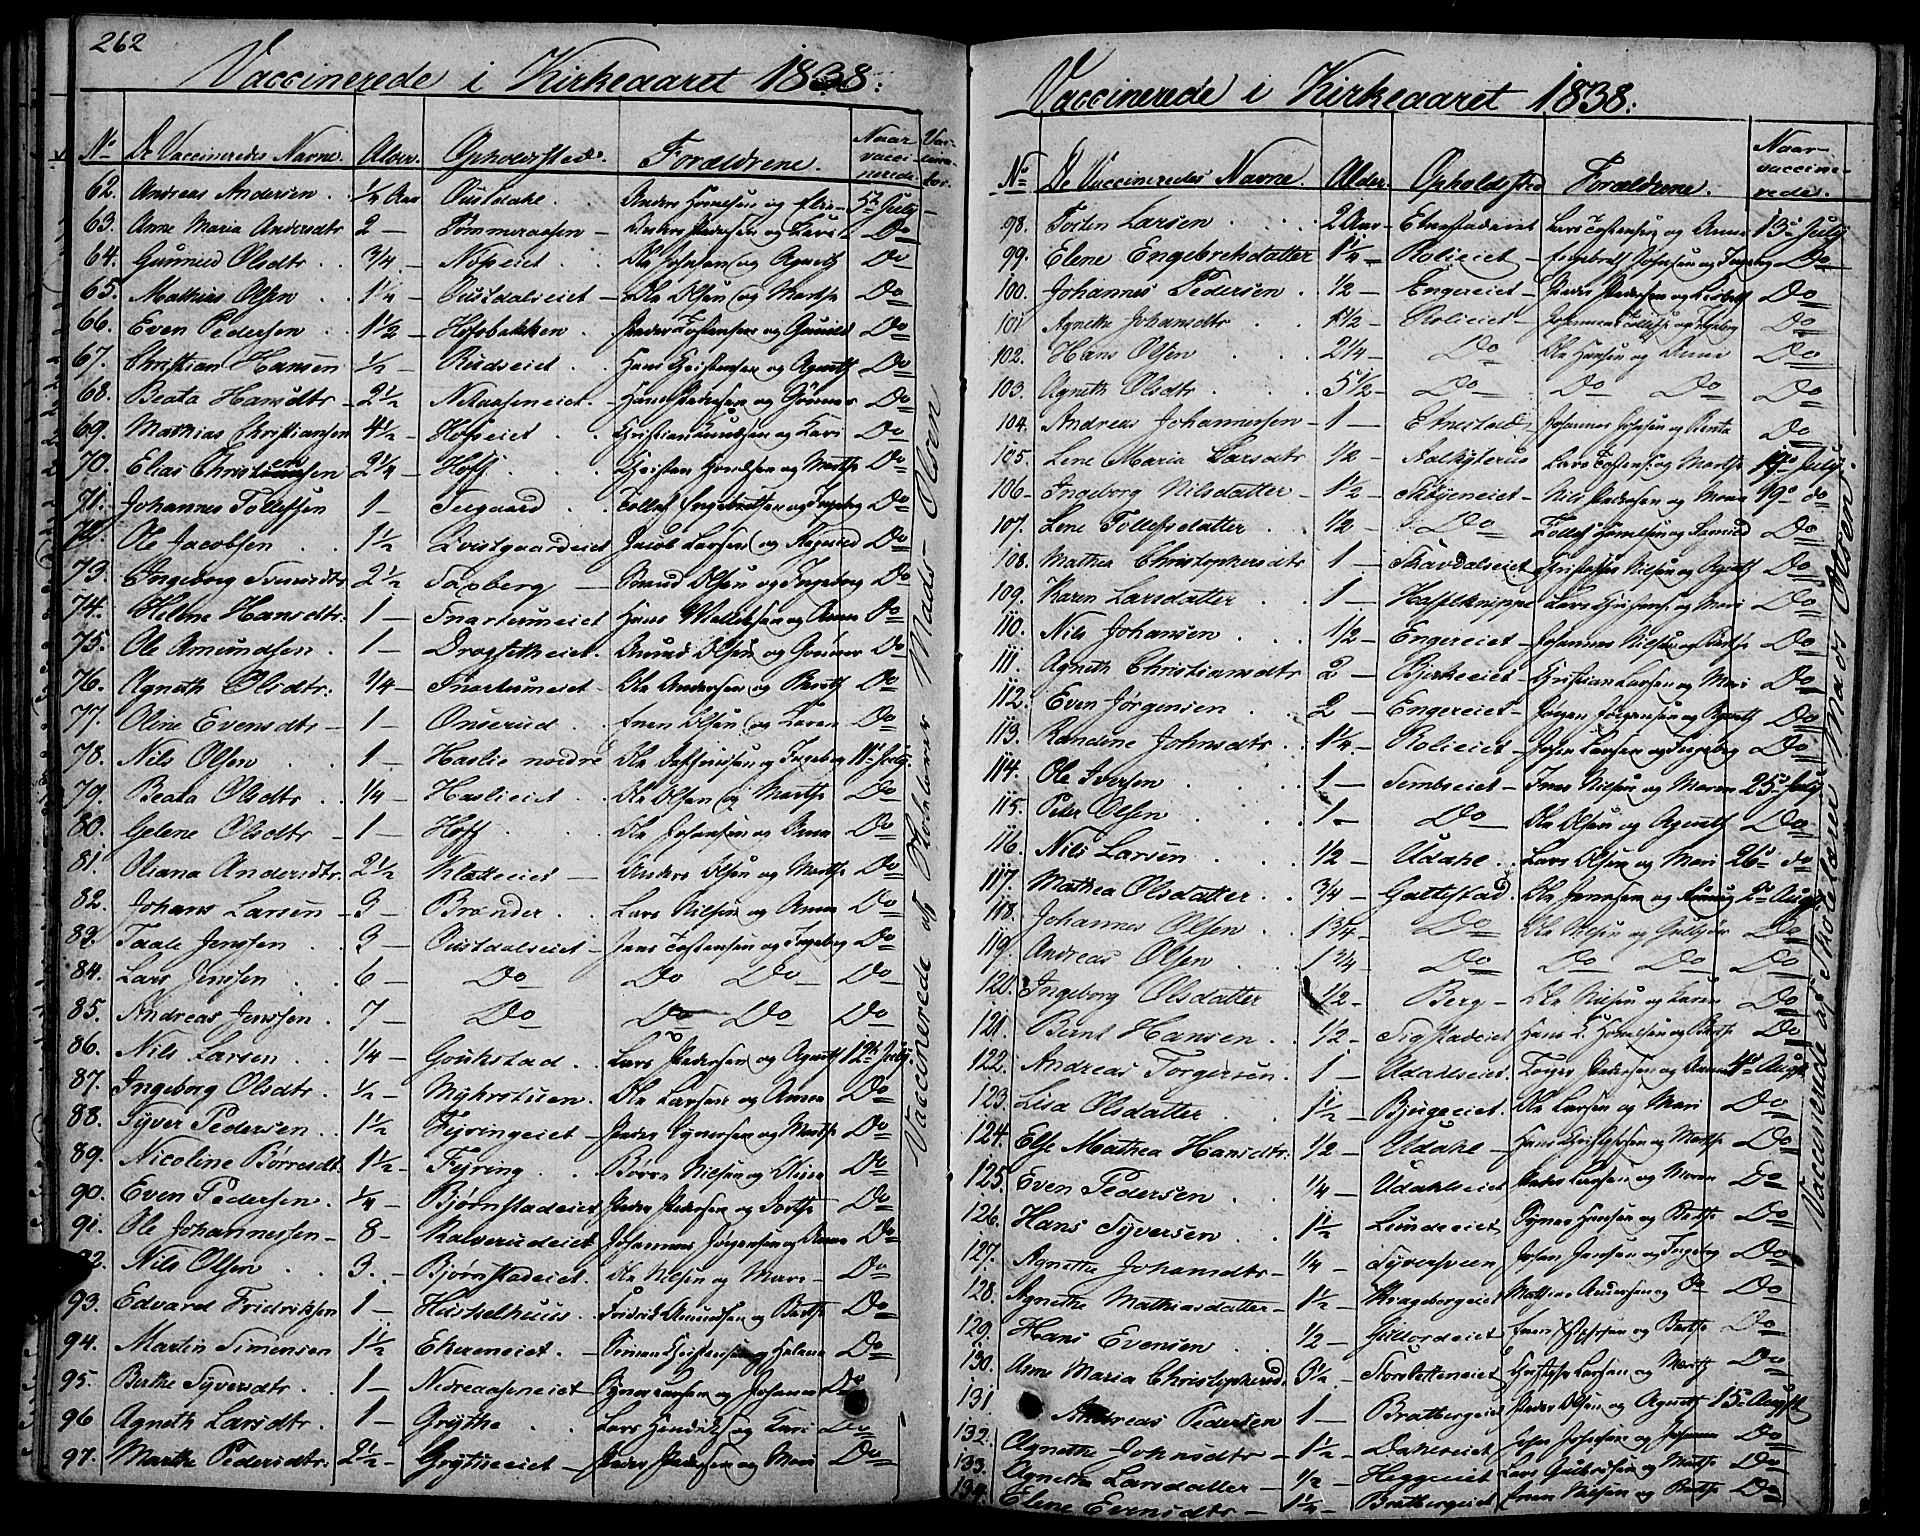 262
Vaccinerede i Kirkeaaret 1838.
No De Vaccineredes Navne. Alder. Opholdssted. Forældrene. Naar vaccinerede
62. Andreas Andersen 1/4 Aar Oustdahl Anders
63. Anne Maria Andersdtr 2 — Tommeraasen — Anders Pedersen og Kari Do
64. Gunnild Olsdtr 3/4 — Ole Johnsen og Agneth Do
65. Mathias Olsen 1 1/4 — Oustdalseiet — Ole Olsen og Marthe Do
66. Even Pedersen 1 1/2 — Hofsbakken Peder Tostensen og Gunild Do
67. Christian Hansen 1/2 — Rudseiet Hans Christensen og Agneth Do
68. Beata Hansdtr 2 1/2 — Hans Pedersen og Do
69. Mathias Christiansen 4 1/2 — Hofseiet Christian Knudsen og Kari Do
70. Elias Christensen 2 1/4 — Hoff og Marthe Do
71. Johannes Tollefsen 1 — Teegaard Tollef Engebretsen og Ingeborg Do
72. Ole Jacobsen 1 1/2 Qvistgaardeiet Jacob Larsen og Do
73. Ingeborg 2 1/2 — Saxberg — Olsen og Ingeborg Do
74. Helene Hansdtr. 1 — Snartumeiet Hans og Anne Do
75. Ole Amundsen 1 — Amund Olsen og Do
76. Agneth Olsdtr. 1/4 — Snartumeiet — Ole Andersen og Berthe Do
77. Olene Evensdtr — 1 — Onserud Even Olsen og Karen Do
78. Nils Olsen 1 — Haslie nordre Ole og Ingeborg 11 July
79. Beata Olsdtr 1/4 — Haslieiet Ole Olsen og Marthe Do
80. Gelene Olsdtr — 1 — Hoff Ole Johansen og Anne Do
81. Oliana Andersdtr. 2 1/2 Klatteeiet — Anders Olsen og Marthe Do
82. Johans Larsen — 3 — Brænder Lars Nilsen og Anne Do
83. Taale Jenssen 3 — Oustdalseiet — Jens Tostensen og Ingeborg Do
84. Lars Jenssen 6 Do Do Do Do
85. Andreas Jenssen 7 — Do Do Do Do
86. Nils Larsen 1/4 — Goukstad Lars Pedersen og Agneth 12 July
87. Ingeborg Olsdtr. 1/2 — Myhrstuen Ole Larsen og Anne Do
88. Syver Pedersen 1 1/2 Fyringeiet — Peder Syversen og Marthe Do
89. Nicoline Børresdt. 1 1/2 — Fyring Børre Nilsen og Do
90. Even Pedersen 1/4 — Bjørnstadeiet Peder Pedersen og Do
91. Ole Johannessen — 8 — Kalverudeiet Johannes Jørgensen og Anne Do
92. Nils Olsen 3. — Bjørnstadeiet Ole Nilsen og Mari — Do
93. Edvard Fridriksen 1 — Haskelhuus Fridrik Amundsen og Berthe Do
94. Martin Simensen 1 1/2 Ekereneiet Simen Christensen og Helene Do
95. Berthe Syversdtr 1 — Nedreaaseneiet — Syver Larsen og Johanne Do
96 Agneth Larsdtr 1 — Grythe Lars Hendriks. og Kari Do
97. Marthe Pedersdtr. 2 1/2 — Gryteeiet — Peder Pedersen og Mari Do
Vaccinerede af Skolelærer Mads Olsen
Vaccinerede i Kirkeaaret 1838.
No De Vaccineredes Navne. Alder. Opholdssted Forældrene. Naar vaccinerede.
98. Tosten Larsen 2 Aar — Etnestadeiet Lars Tostensen og Anne 13 July
99. Elene Engebretsdatter 1 1/4 — Rolieiet — Engebreth Johnsen og Ingeborg Do
100. Johannes Pedersen 1/2 — Engereiet — Peder Pedersen og Lisbeth Do
101 Agnethe Johansdtr 1 1/2 — Rolieiet — Johannes Tollefsen og Ingeborg Do
102. Hans Olsen 2 1/4 — Do Ole Hansen og Anne Do
103. Agneth Olsdtr 5 1/2 — Do Do Do Do
104. Andreas Johannessen — 1 — Etnestad Johannes og Do
105. Lene Maria Larsdtr 1/2 — Lars Tostens. og Marthe 19 July
106 — Ingeborg Nilsdatter — 1 1/2 — Skøjeneiet — Nils Pedersen og 19 do
107. Lene Tollefsdatter 1/2 — Do Tollef og Do
108. Mathea Christophersdtr 1 — Skavdalseiet Christopher Nilsen og Agneth Do
109. Karen Larsdatter 1 — Lars og Mari Do
110. Nils Johansen 1/2 — Engereiet — Johannes Nilsen og Berthe Do
111. Agneth Christiansdtr 2 — Bjerkeeiet — Christian Larsen og Mari Do
112. Even Jørgensen 2 — Engereiet — Jørgen Jørgensen og Agneth Do
113. Randine Johnsdtr. 1 1/4 — Rolieiet — John Larsen og Ingeborg Do
114. Ole Iversen 1 — Sembseiet — Iver Nilsen og Maren 25 July
115. Peter Olsen 1 — Do — Ole Olsen og Agneth Do
116. Nils Larsen 1/2 — Udahl Lars Olsen og Mari 26 do
117. Mathea Olsdatter 3/4 — Gallestad Ole Jenssen og 2 Augst
118. Johannes Olsen 1 3/4 — Do Ole Nilsen og Do
119. Andreas Olsen 1 3/4 — Do Do Do Do
120. Ingeborg Olsdatter 1/2 — Berg — Ole Nilsen og Karen Do
121. Bernt Hansen 1/2 — Sigstadeiet Hans og Berthe Do
122. Andreas Torgersen 1 — Udahlseiet. Torger Pedersen og Anne 4 Augst
123. Lisa Olsdatter 1 1/2 — Bjugeeiet. Ole Larsen og Mari Do
124. Else Mathea Hansdtr. 1/2 — Udahl — Hans Christophersen og Marthe Do
125. Even Pedersen 1/4 — Udahlseiet Peder Larsen og Maren Do
126. Hans Syversen 1 1/2 — Lundeeiet Syver Hansen og Berthe Do
127. Agnethe Johansdtr — 1/4 — Syversveen Johan Jensen og Ingeborg Do
128. Agnethe Mathiasdatter — 1 1/2 — Kragebergeiet Mathias Andersen og Do Do
129. Hans Evensen 1/2 — Gillordeiet Even og Berthe Do
130. Anne Maria Christophersd. 3 1/2 — Christopher Larsen og Marthe Do
131 Andreas Pedersen 1 — Bratbergeiet Peder Olsen og Agneth 15 Augst
132. Agnethe Johnsdtr — 1 1/2 — Dahlseiet John Johnsen og Johanne Do
133. Agnethe Larsdatter — 1/2 — Heggeeiet Lars Gulbrandsen og Marthe Do
134. Elene Evensdtr — 1 1/4 — Bratbergeiet Even Nilsen og Berthe Do
Vaccinerede af Skolelærer Mads Olsen